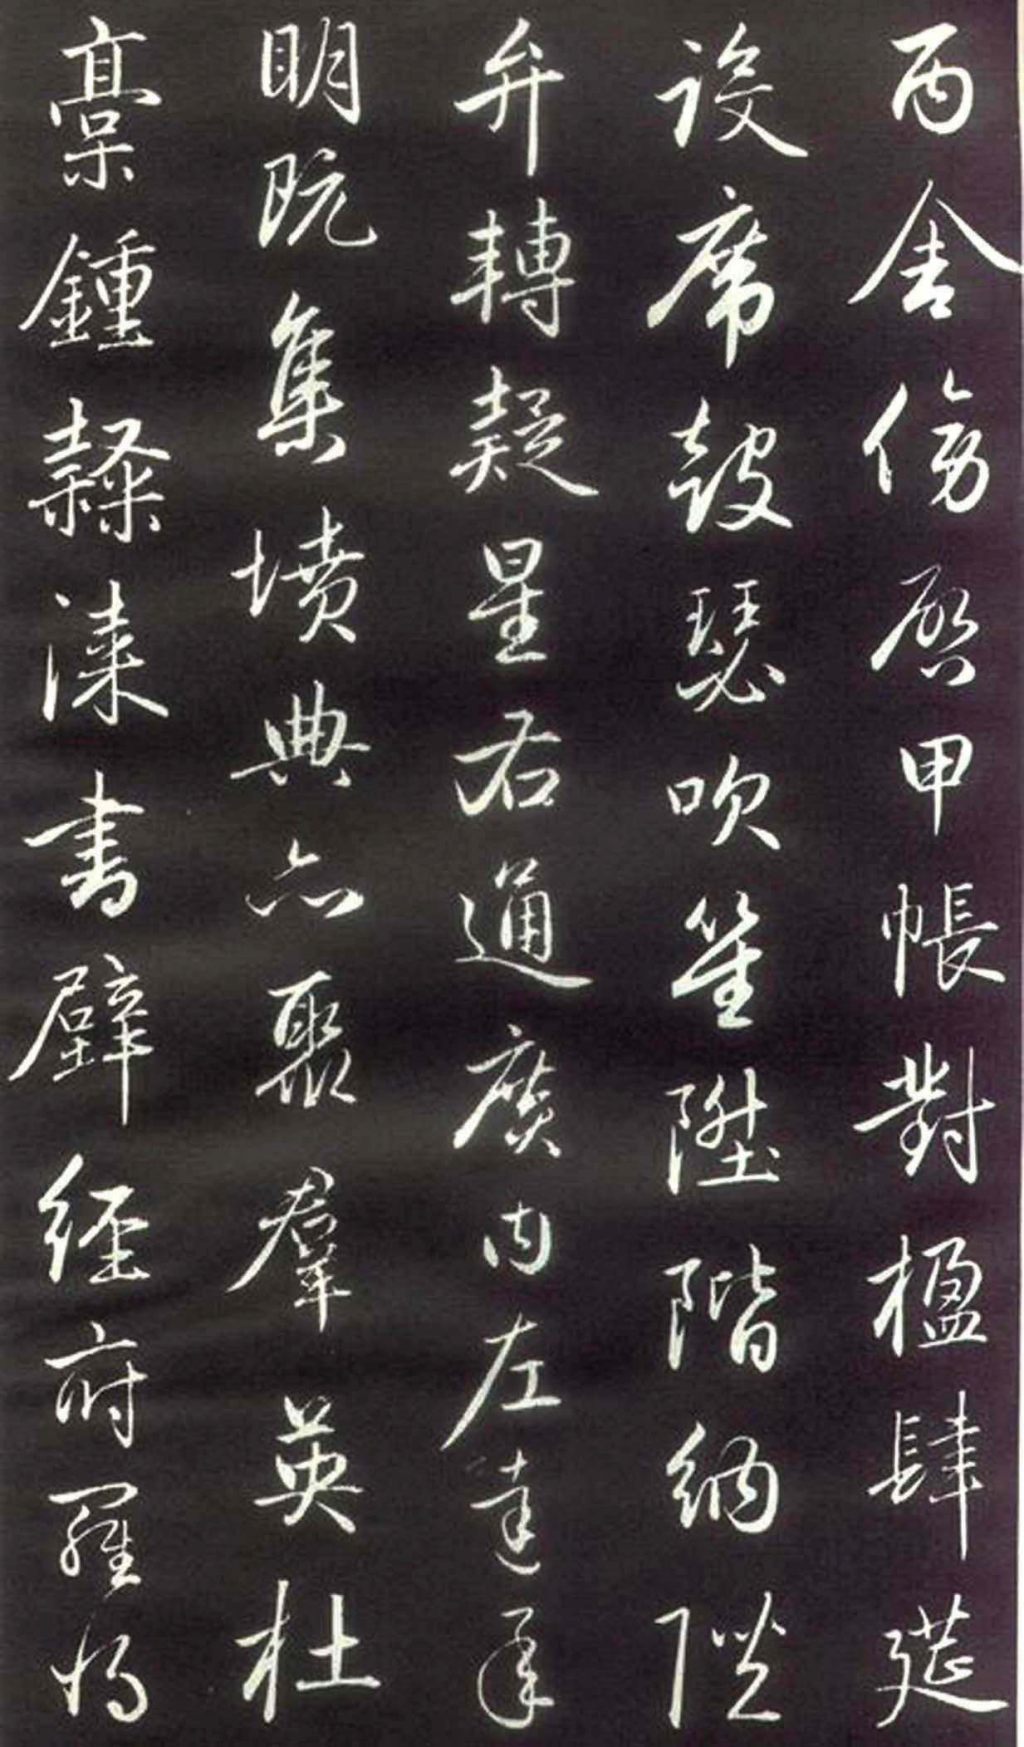 丙舍傍啓甲帳對楹肆筵
設席鼓瑟吹笙陞階納陛
弁轉疑星右通廣内左達承
明既集墳典亦聚群英杜
稾鍾隸漆書壁經府羅將